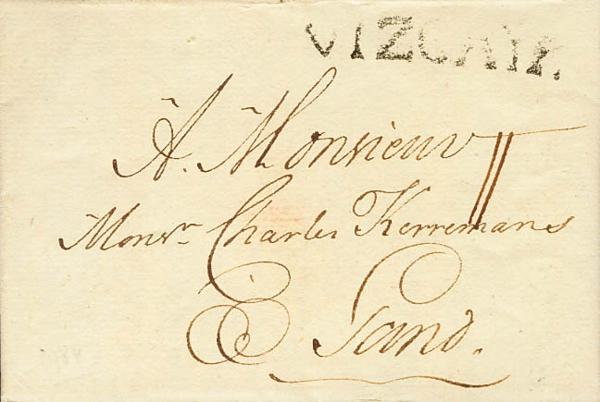 VIZCAYA
A. Monsieur
Monsr. Charles Kerremans
Gand.